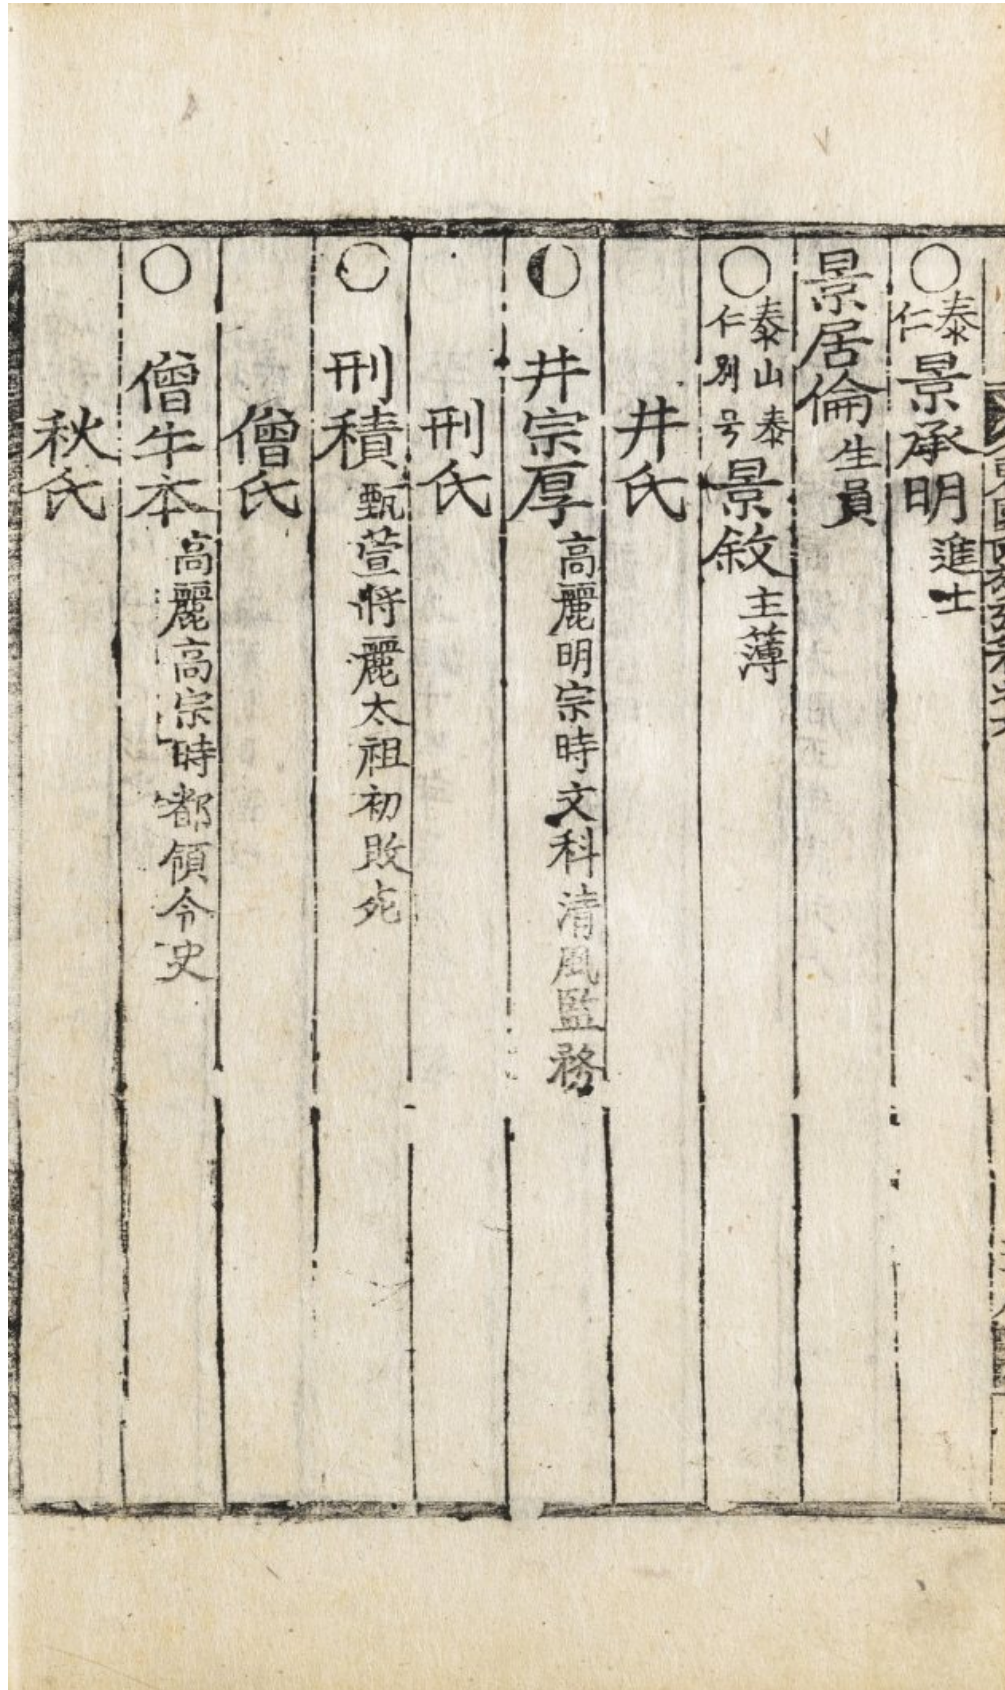 ○泰仁景承明進士
景居倫生員
○泰山泰仁別号景敘主薄
井氏
○井宗厚高麗明宗時文科清風監務
刑氏
○刑積甄萱將麗太祖初敗死
僧氏
○僧牛本高麗高宗時都領令史
秋氏